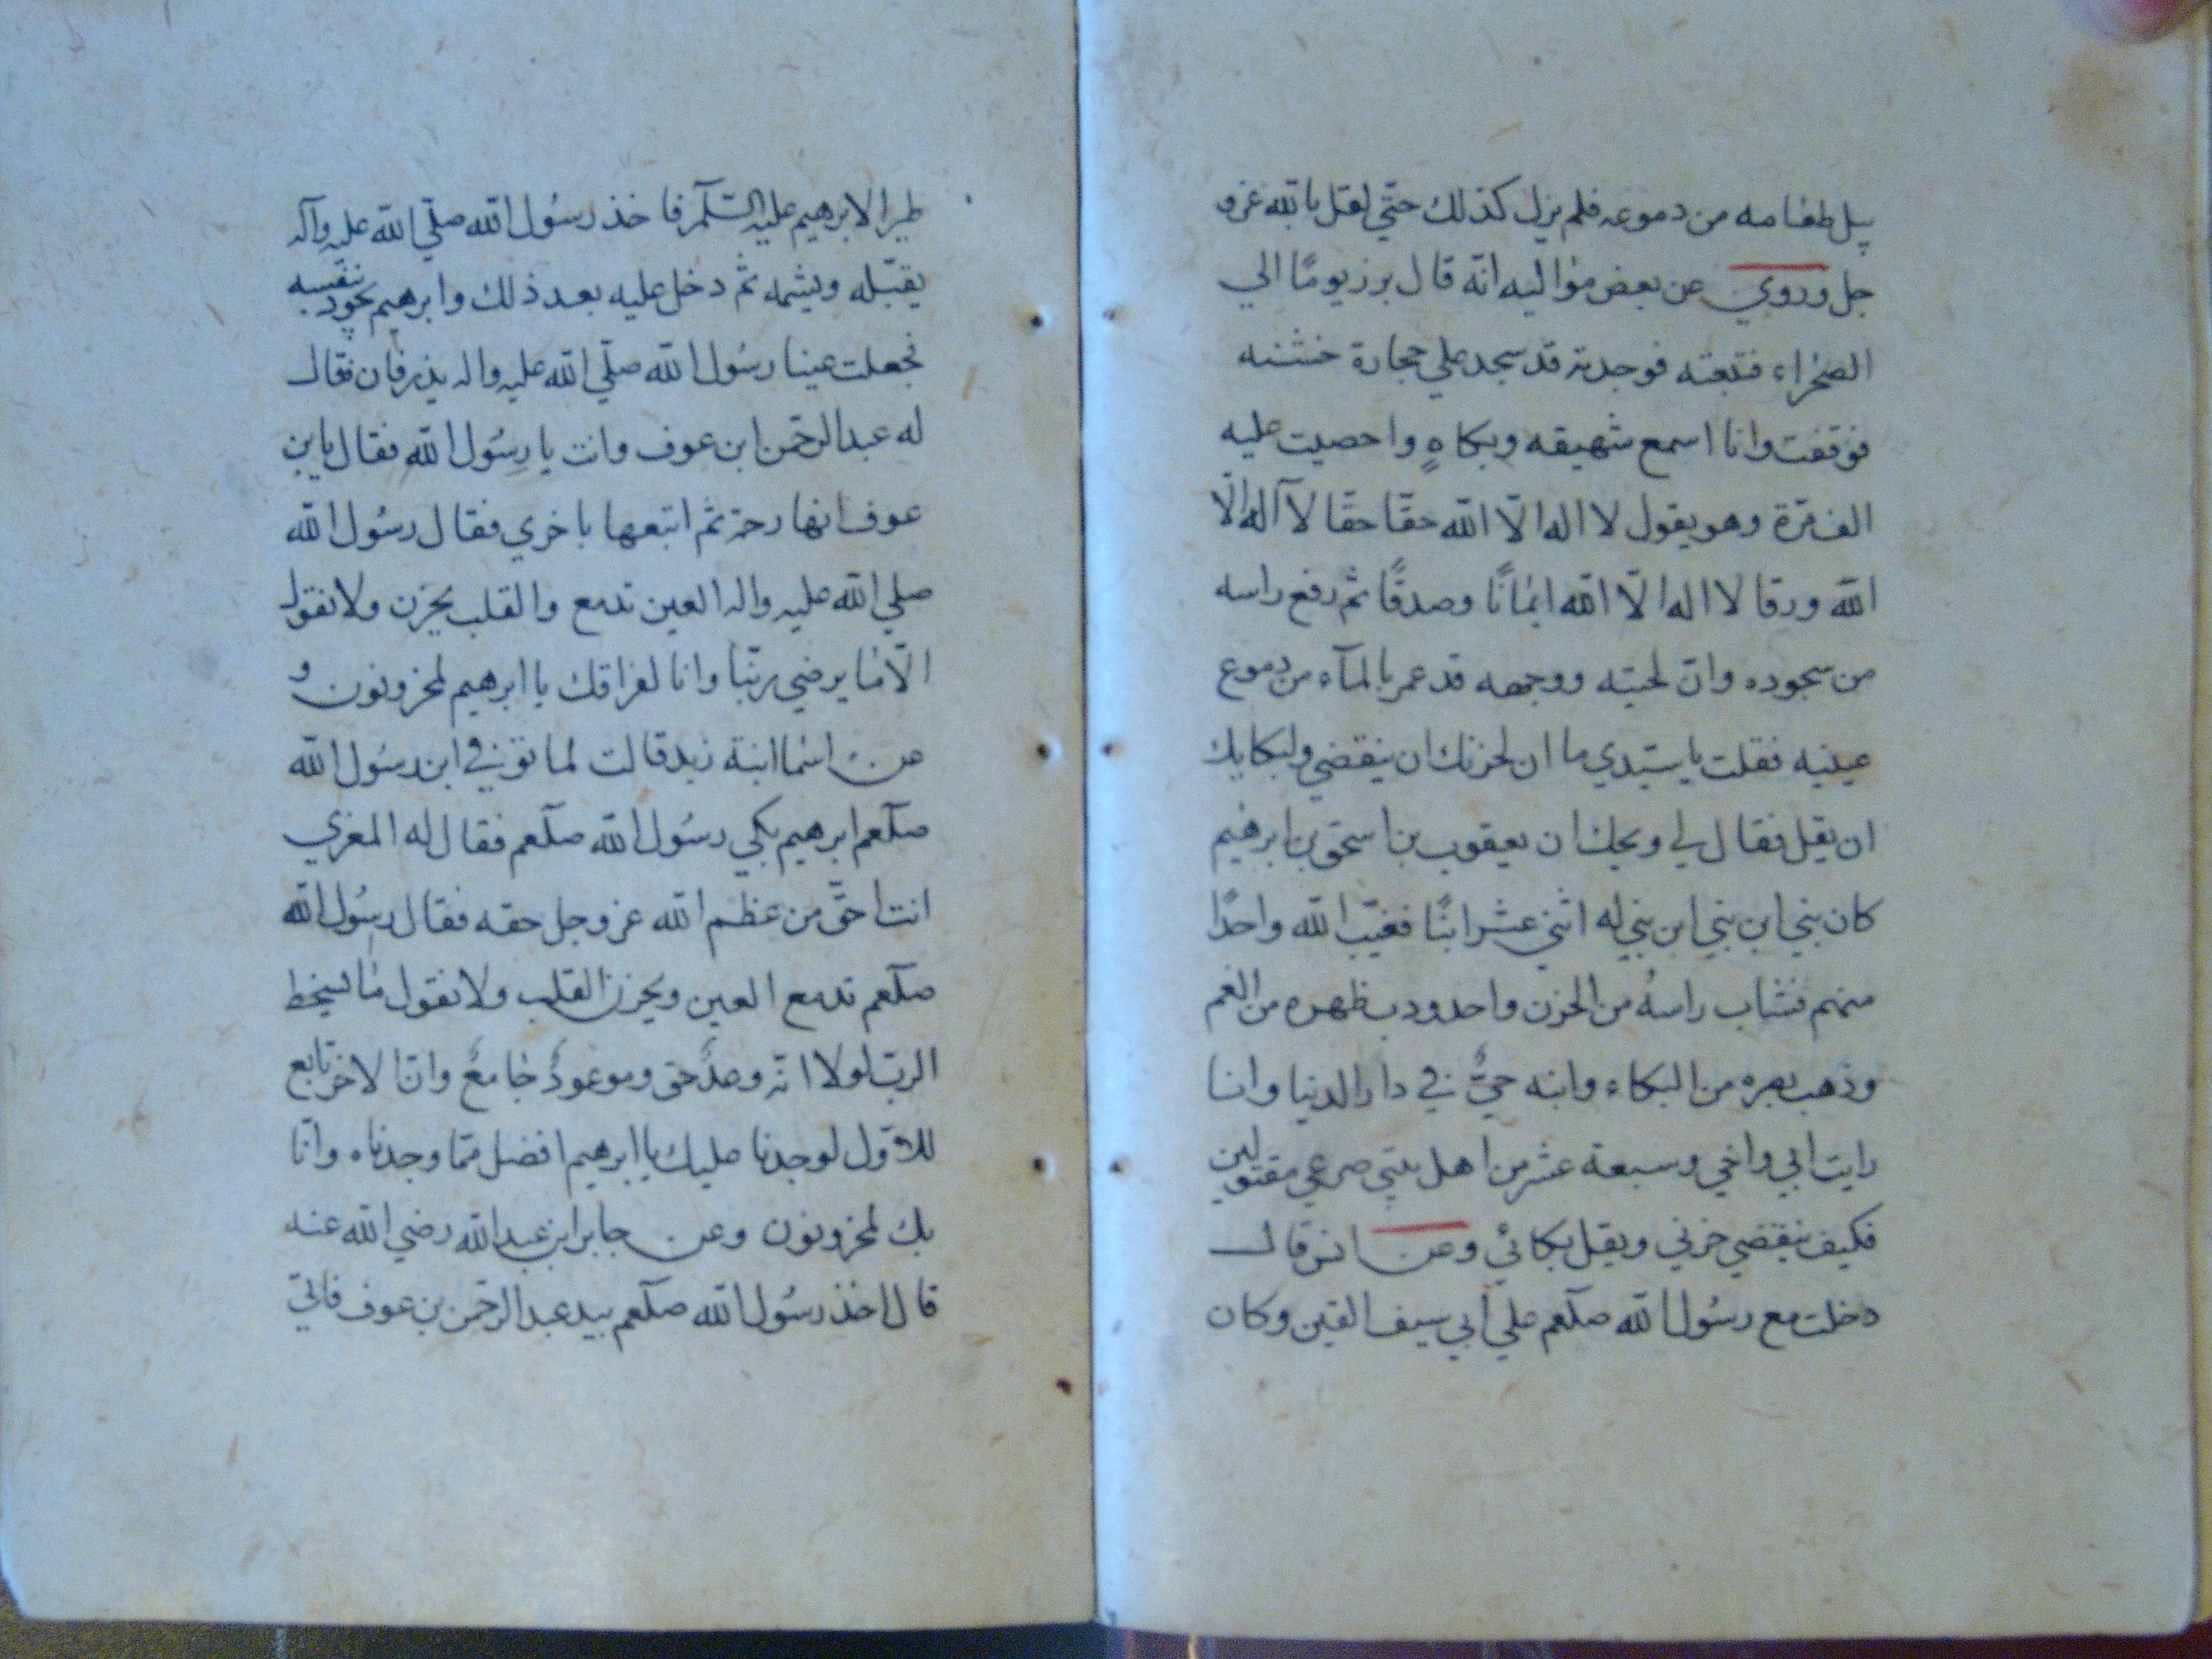 يبل طعامه من دموعه فلم يزل كذلك حتي لقل بالله عزو
جل وروي عن بعض مواليه انه قال برز يومًا الي
الصحراء فتبعته فوجدته قد سجد علي حجارة خشنه
فوقفت وانا اسمع شهيقه وبكاهٍ واحصيت عليه
الف مرّة وهو يقول لا اله الّا الله حقّا حقّا لآ اله الّا
الله ورقا لا اله الّا الله ايمانًا وصدقًا ثم رفع راسه
من سجوده وانّ لحيته ووجهه قد عمر بالمآء من دموع
عينيه فقلت يا سيّدي ما ان لحزنك ان ينقضي ولبكايك
ان يقل فقال لي ويحك ان يعقوب بن اسحق بن ابرهيم
كان بني ابن بني ابن بني له اثني عشر ابنًا فغيّب الله واحدًا
منهم فشاب راسهُ من الحزن واحدودب ظهره من الغم
وذهب بصره من البكاء وابنه حيٌّ في دار الدنيا وانا
رايت ابي واخي وسبعة عشر من اهل بيتي صرعي مقتولين
فكيف ينقضي حزني ويقل بكائي وعن انس قال
دخلت مع رسُول الله صلعم علي ابي سيف القين وكان
طيرا لابرهيم عليه السّلم فاخذ رسُول الله صلّي الله عليه وآله
يقبّله ويشمه ثم دخل عليه بعد ذلك وابرهيم يجود بنفسه
فجعلت عينا رسُول الله صلّي الله عليه واله يذرفان فقال
له عبد الرحمن ابن عوف وانت يا رسُول الله فقال يابن
عوف انها رحمة ثم اتبعها باخري فقال رسُول الله
صلي الله عليه واله العين تدمع والقلب يحزن ولا نقول
الّا ما يرضي ربّنا وانا لفراقك يا ابرهيم لمحزونون و
عن اسما ابنة زيد قالت لما توفي ابن رسُول الله
صلعم ابرهيم بكي رسُول الله صلعم فقال له المعزي
انت احقّ من عظم الله عزوجل حقه فقال رسُول الله
صلعم تدمع العين ويحزن القلب ولا نقول ما يسخط
الربّ لولا انّه وعدٌ حق وموعودٌ جامعٌ وانّ الاخر تابع
للاوّل لوجدنا عليك يا ابرهيم افضل ممّا وجدناه وانّا
بك لمحزونون وعن جابر ابن عبد الله رضي الله عنه
قال اخذ رسُول الله صلعم بيد عبد الرحمن بن عوف فاتي